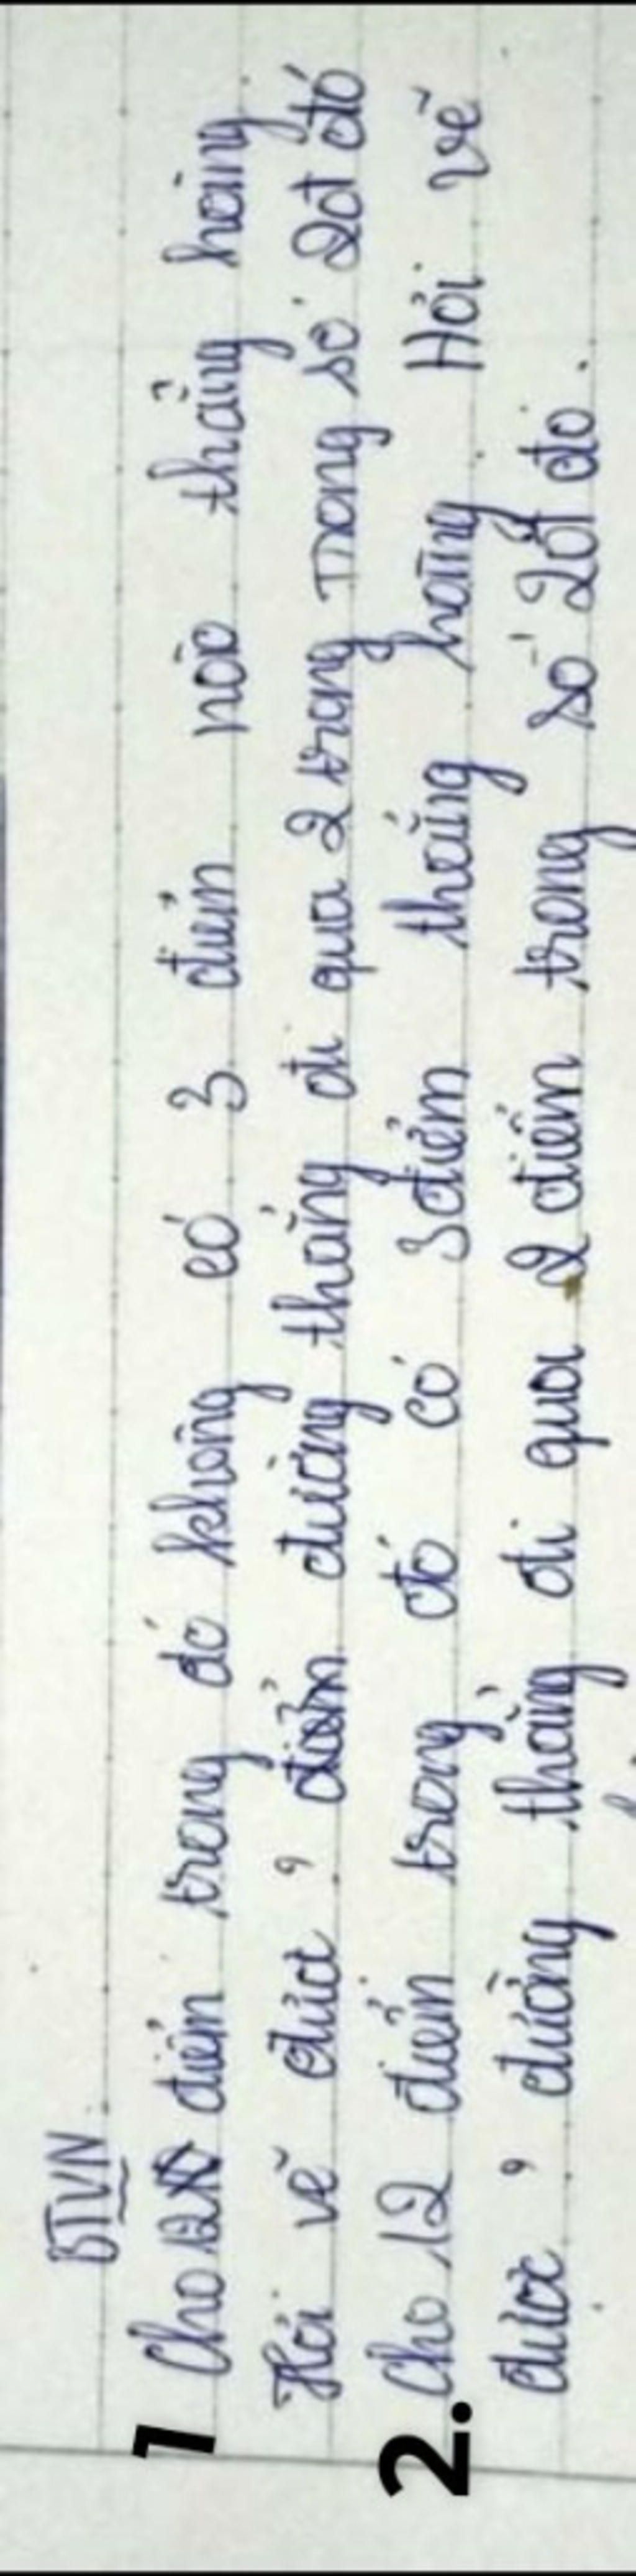 BTVN
1 Cho 12 điểm trong đó không có 3 điểm nào thẳng hàng
Hỏi vẽ được , điểm đường thẳng đi qua 2 trong trong số 2đt đó
2. Cho 12 điểm trong đó có 3 điểm thẳng hàng . Hỏi vẽ
được , đường thẳng đi qua 2 điểm trong số 2đt đó .